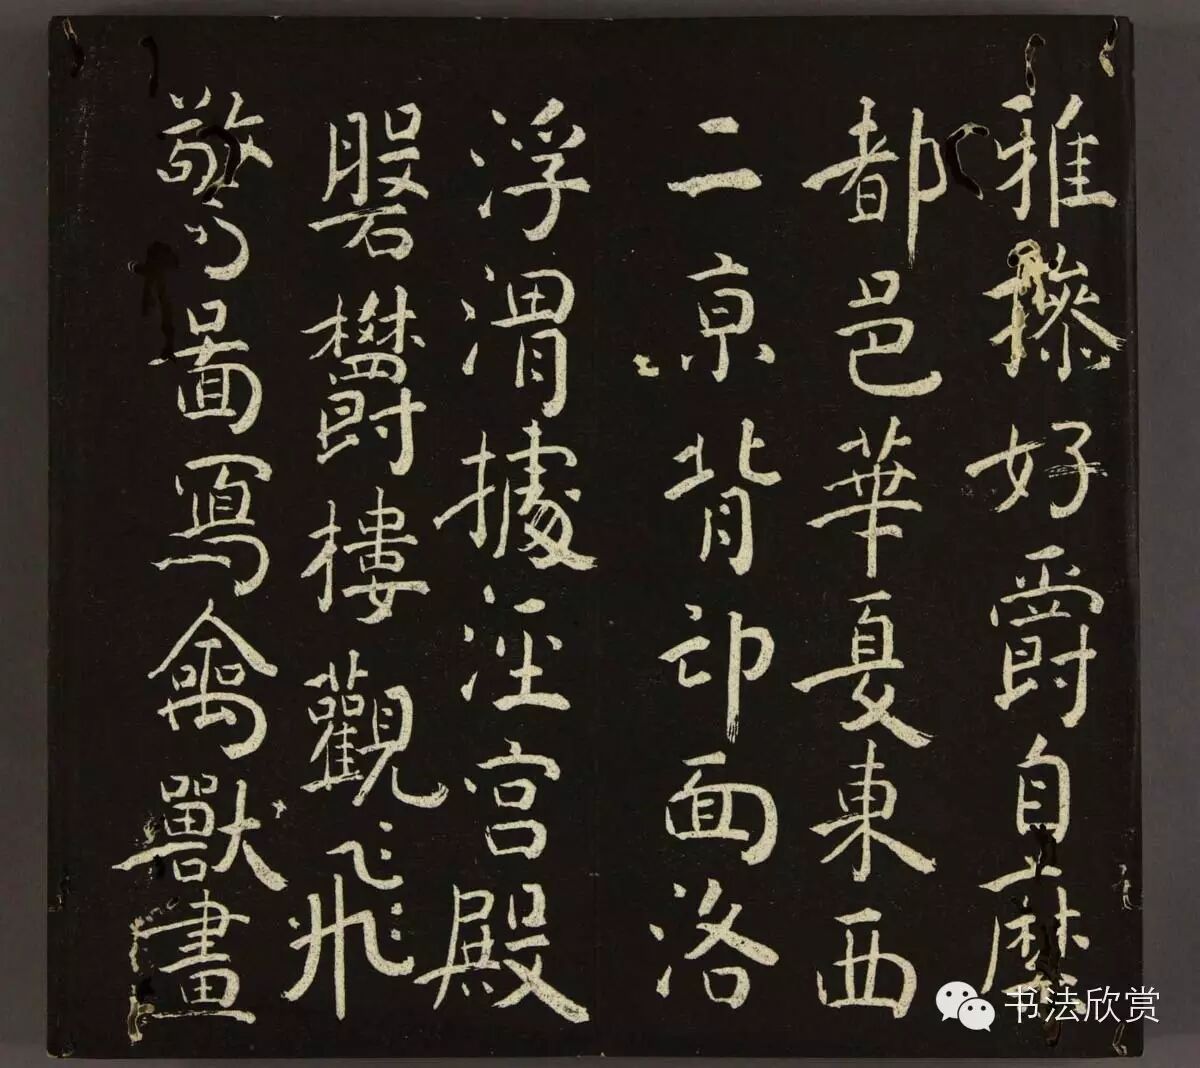 雅操好爵自縻
都邑華夏東西
二京背邙面洛
浮渭據涇宫殿
磐鬱樓觀飛
驚圖寫禽獸畫
书法欣赏